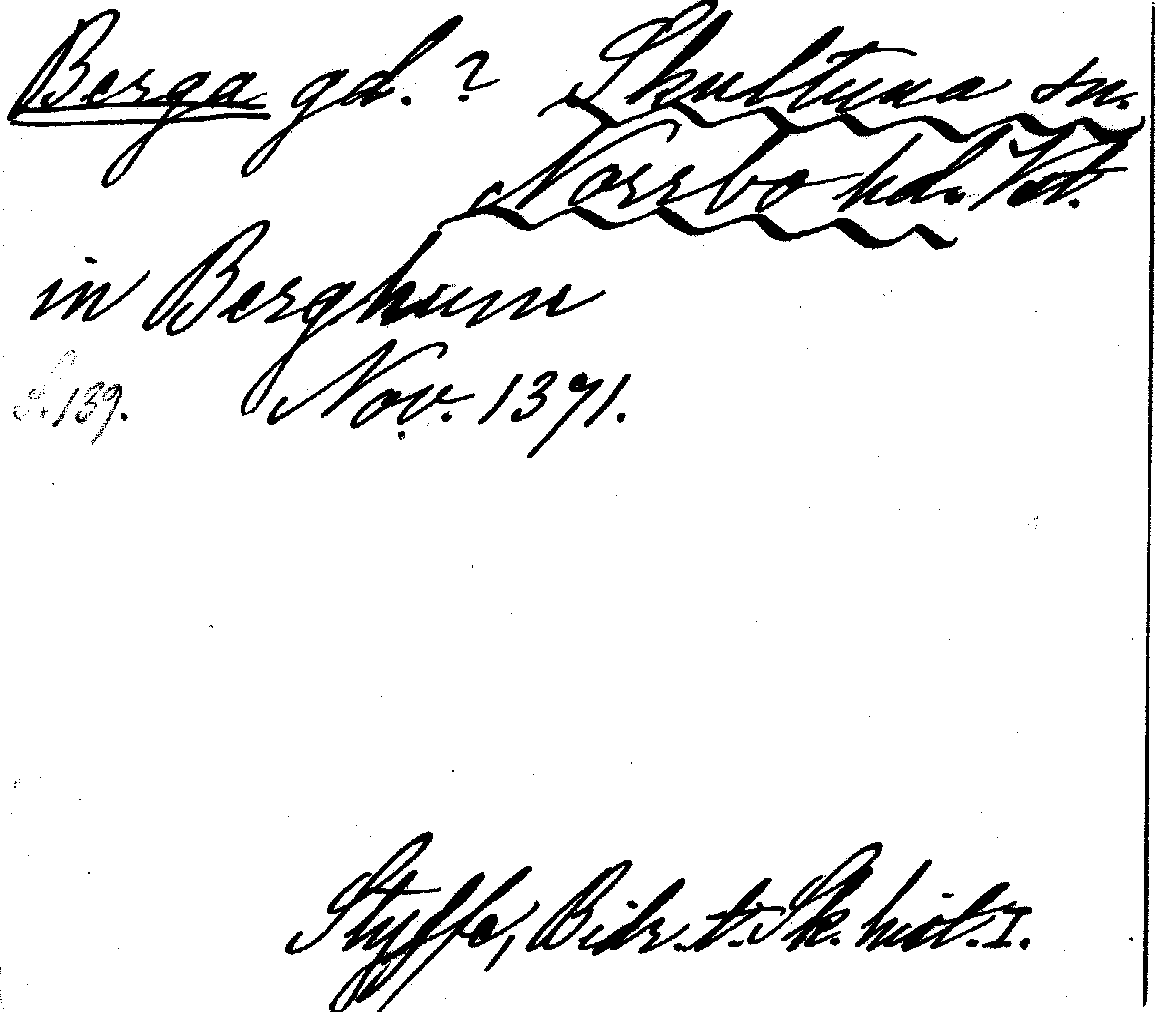 Berga gd. ? Skultuna sn.
Norrbo hd. Vstl.
in Berghum
S. 139. Nov. 1371.
Styffe, Bidr. t. Sk. hist. I.